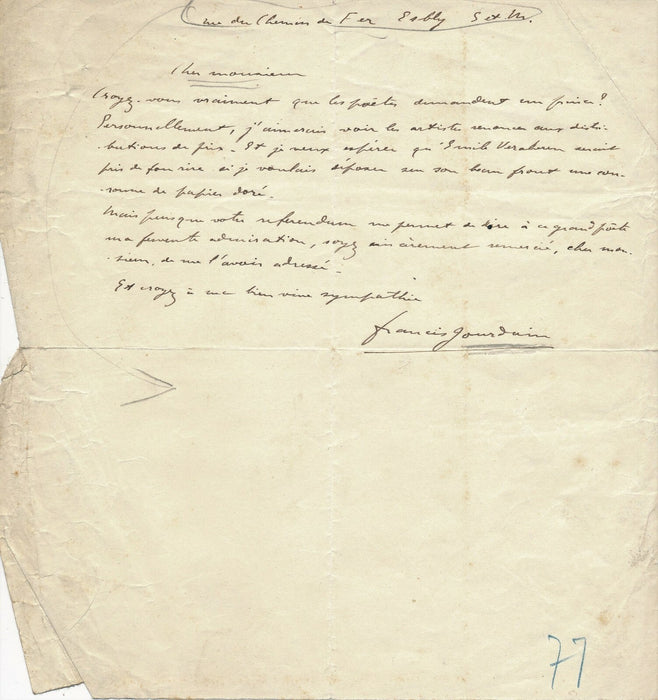 rue du Chemin de Fer Esbly S et M.
Cher monsieur
Croyez-vous vraiment que les poètes demandent un prince?
Personnellement, j'aimerais voir les artistes renoncer aux distri-
butions de prix. Et je veux espérer qu'Emile Verhaeren serait
pris de fou rire si je voulais déposer sur son beau front une cou-
ronne de papier doré.
Mais puisque votre referendum me permet de dire à ce grand poète
ma fervente admiration, soyez sincèrement remercié, cher mon-
sieur, de me l'avoir adressé.
Et croyez à ma bien vive sympathie
Francis Jourdain
77